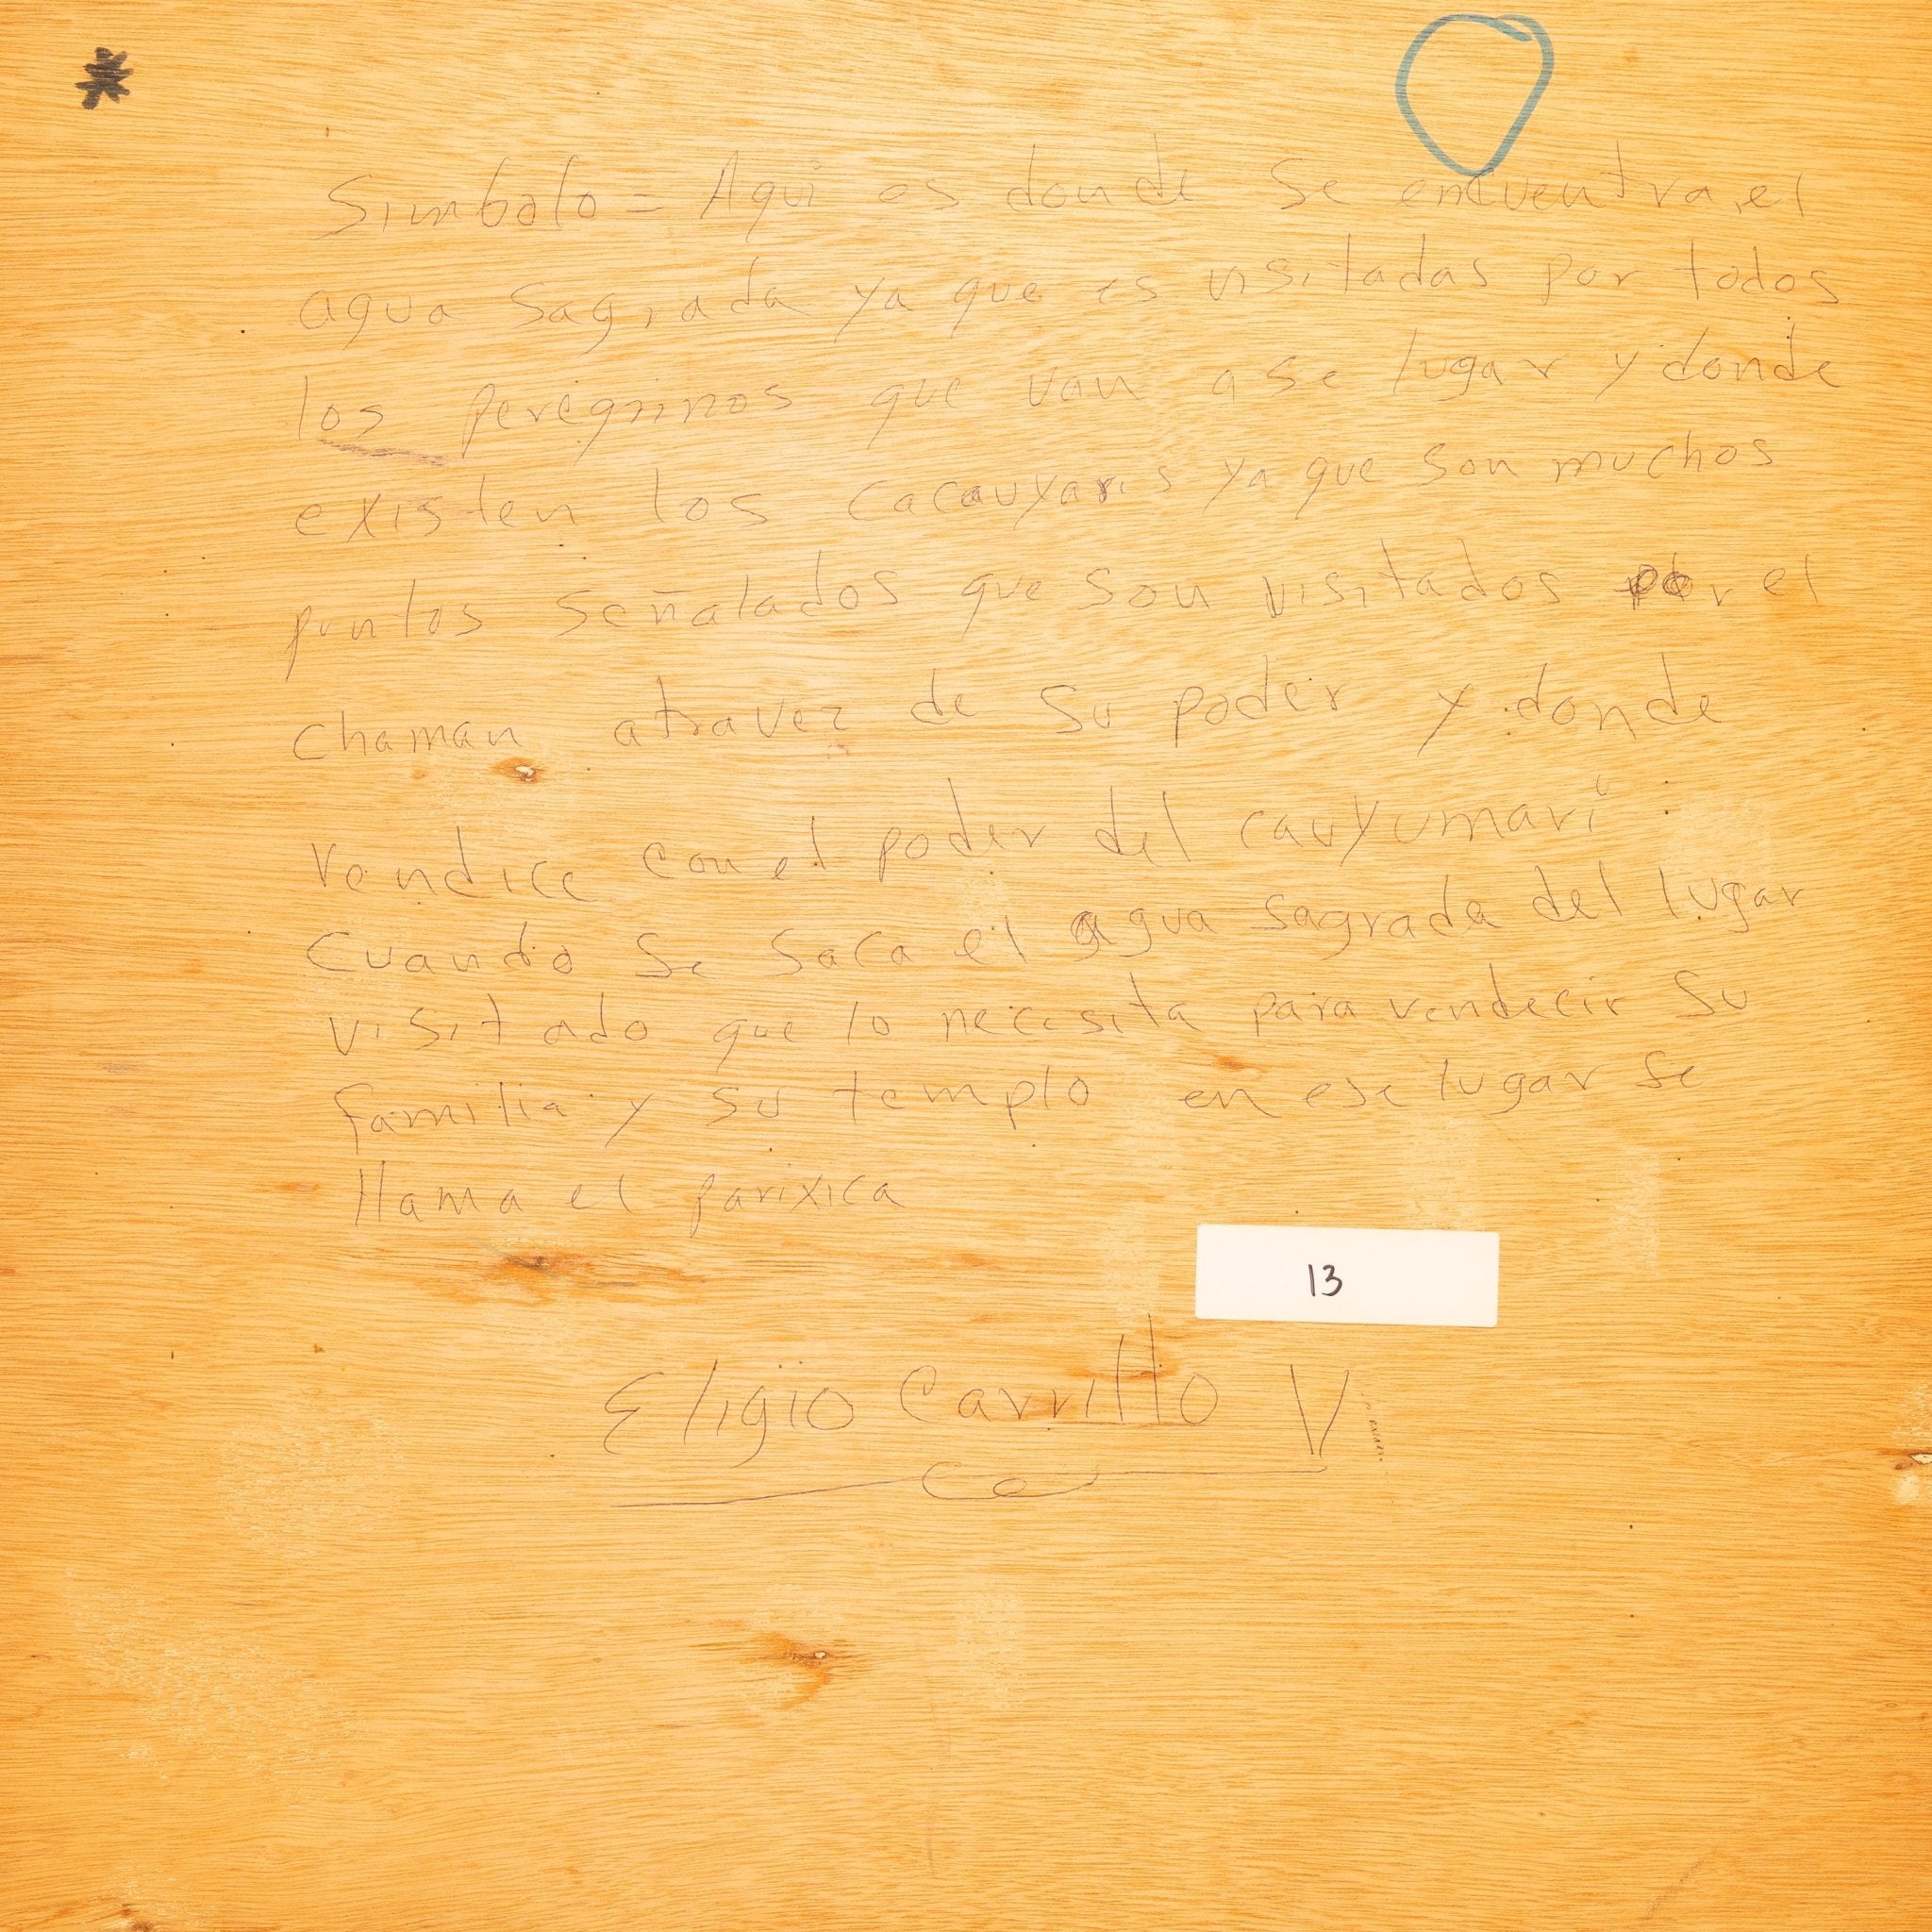 Simbolo = Aqui es donde se encuentra, el
agua sagrada ya que es visitadas por todos
los peregrinos que van a se lugar y donde
existen los cacauyaris ya que son muchos
puntos señalados que son visitados por el
chaman atravez de su poder y donde
vendice con el poder del cauyumari
cuando se saca el agua sagrada del lugar
visitado que lo necesita para vendecir su
familia y su templo en ese lugar se
llama el parixica
13
Eligio Carrillo V